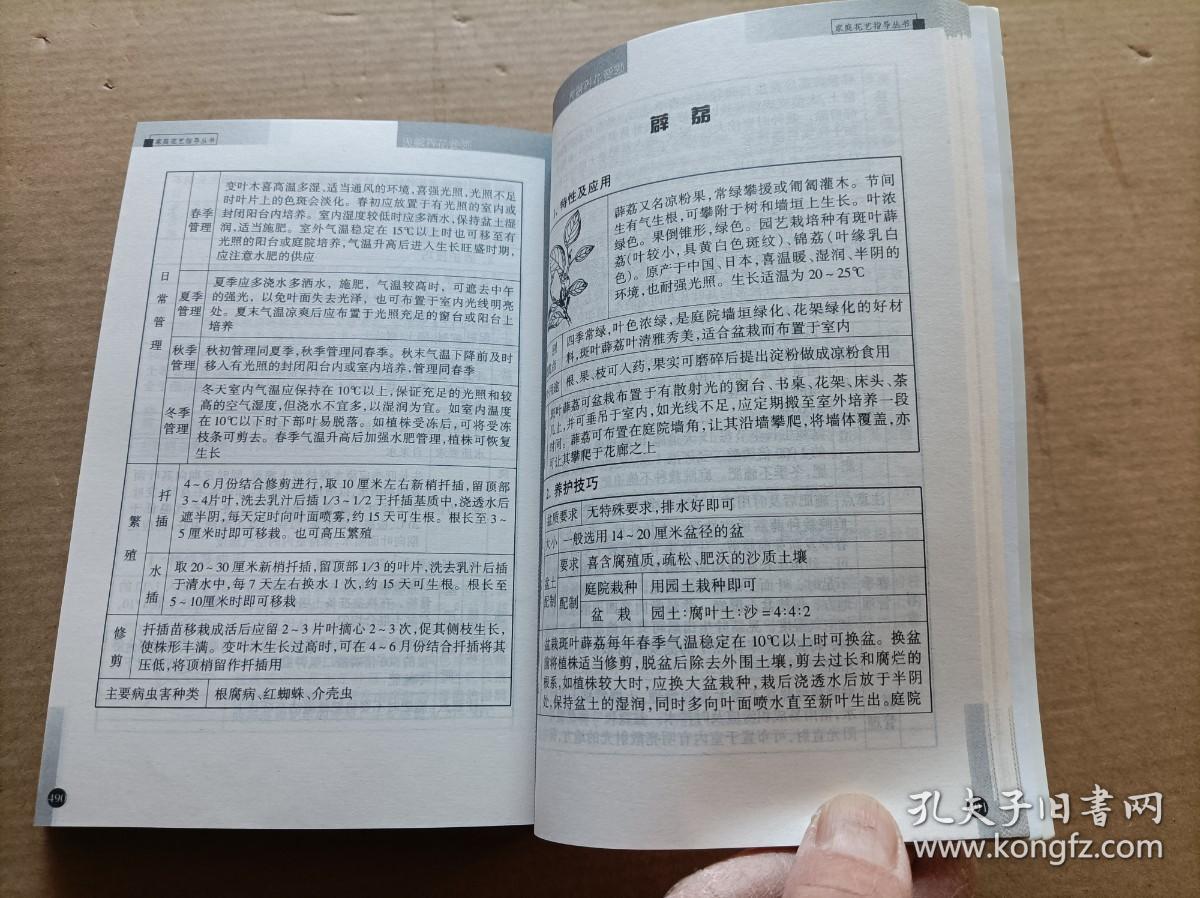 家庭花艺指导丛书
日常管理
春季管理
变叶木喜高温多湿、适当通风的环境,喜强光照,光照不足
时叶片上的色斑会淡化。春初应放置于有光照的室内或
封闭阳台内培养。室内湿度较低时应多洒水,保持盆土湿
润,适当施肥。室外气温稳定在15℃以上时也可移至有
光照的阳台或庭院培养,气温升高后进入生长旺盛时期,
应注意水肥的供应
夏季管理
夏季应多浇水多洒水,施肥,气温较高时,可遮去中午
的强光,以免叶面失去光泽,也可布置于室内光线明亮
处。夏末气温凉爽后应布置于光照充足的窗台或阳台上
培养
秋季管理
秋初管理同夏季,秋季管理同春季。秋末气温下降前及时
移入有光照的封闭阳台内或室内培养,管理同春季
冬季管理
冬天室内气温应保持在10℃以上,保证充足的光照和较
高的空气湿度,但浇水不宜多,以湿润为宜。如室内温度
在10℃以下时下部叶易脱落。如植株受冻后,可将受冻
枝条可剪去。春季气温升高后加强水肥管理,植株可恢复
生长
繁殖
扦插
4~6月份结合修剪进行,取10厘米左右新梢扦插,留顶部
3~4片叶,洗去乳汁后插1/3~1/2于扦插基质中,浇透水后
遮半阴,每天定时向叶面喷雾,约15天可生根。根长至3~
5厘米时即可移栽。也可高压繁殖
水插
取20~30厘米新梢扦插,留顶部1/3的叶片,洗去乳汁后插
于清水中,每7天左右换水1次,约15天可生根。根长至
5~10厘米时即可移栽
修剪
扦插苗移栽成活后应留2~3片叶摘心2~3次,促其侧枝生长,
使株形丰满。变叶木生长过高时,可在4~6月份结合扦插将其
压低,将顶梢留作扦插用
主要病虫害种类 根腐病、红蜘蛛、介壳虫
490
家庭花艺指导丛书
薜荔
1. 特性及应用
薜荔又名凉粉果,常绿攀援或匍匐灌木。节间
生有气生根,可攀附于树和墙垣上生长。叶浓
绿色。果倒锥形,绿色。园艺栽培种有斑叶薜
荔(叶较小,具黄白色斑纹)、锦荔(叶缘乳白
色)。原产于中国、日本,喜温暖、湿润、半阴的
环境,也耐强光照。生长适温为20~25℃
四季常绿,叶色浓绿,是庭院墙垣绿化、花架绿化的好材
料,斑叶薜荔叶清雅秀美,适合盆栽而布置于室内
根、果、枝可入药,果实可磨碎后提出淀粉做成凉粉食用
叶薜荔可盆栽布置于有散射光的窗台、书桌、花架、床头、茶
几上,并可垂吊于室内,如光线不足,应定期搬至室外培养一段
时间;薜荔可布置在庭院墙角,让其沿墙攀爬,将墙体覆盖,亦
可让其攀爬于花廊之上
2. 养护技巧
盆质要求 无特殊要求,排水好即可
大小 一般选用14~20厘米盆径的盆
盆土配制
要求 喜含腐殖质,疏松、肥沃的沙质土壤
配制
庭院栽种 用园土栽种即可
盆栽 园土:腐叶土:沙=4:4:2
盆栽斑叶薜荔每年春季气温稳定在10℃以上时可换盆。换盆
前将植株适当修剪,脱盆后除去外围土壤,剪去过长和腐烂的
根系,如植株较大时,应换大盆栽种,栽后浇透水后放于半阴
处,保持盆土的湿润,同时多向叶面喷水直至新叶生出。庭院
孔夫子旧书网
www.kongfz.com